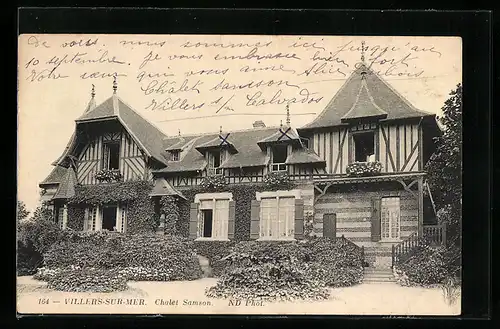 De vous, nous sommes ici jusqu'au
10 septembre. je vous embrasse bien fort
Votre sœur qui vous aime Alice
Châlet Samson
Villers s/ Calvados
164 — VILLERS-SUR-MER. Chalet Samson. ND Phot.